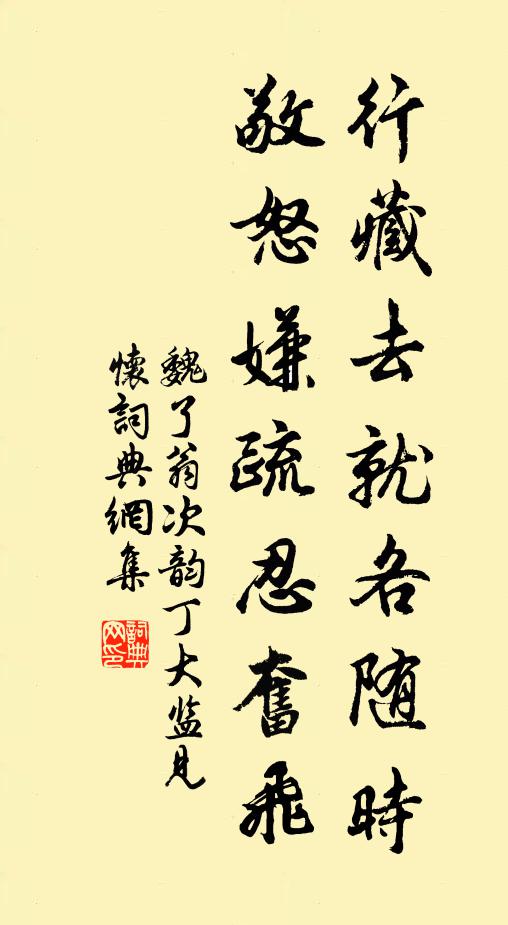 行藏去就各随時
敢怒嫌疏忍奮飛
魏了翁次韵丁大监見
懷詞典網集
詞典网印